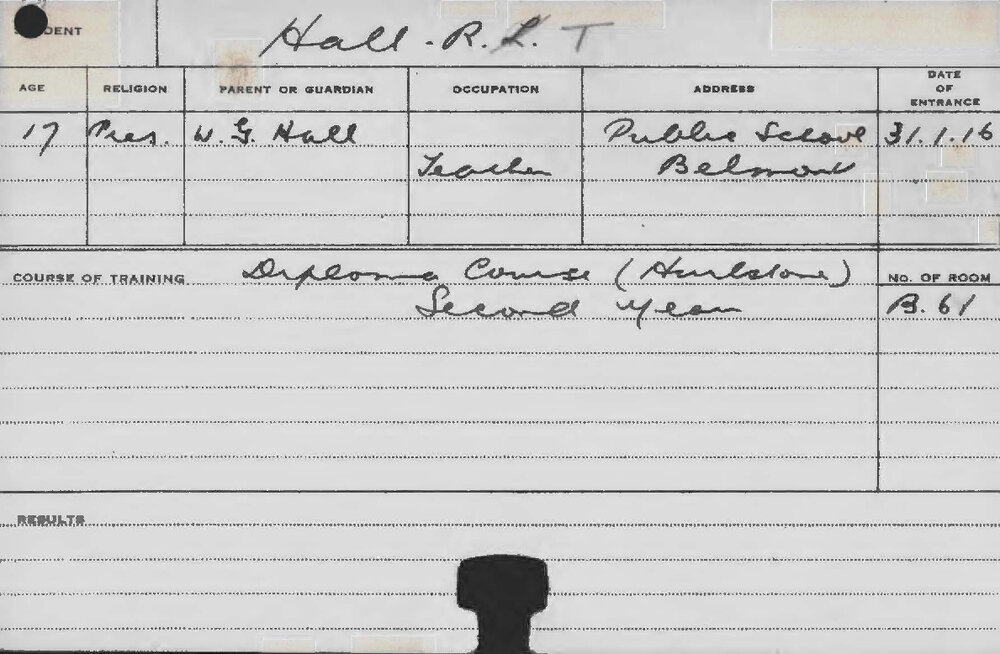 STUDENT Hall. R. L. T
AGE RELIGION PARENT OR GUARDIAN OCCUPATION ADDRESS DATE OF ENTRANCE
17 Pres. W. G. Hall Public School 31.1.16
Teacher Belmont
COURSE OF TRAINING Diploma Course (Hurlstone) NO. OF ROOM
Second Year B. 61
RESULTS